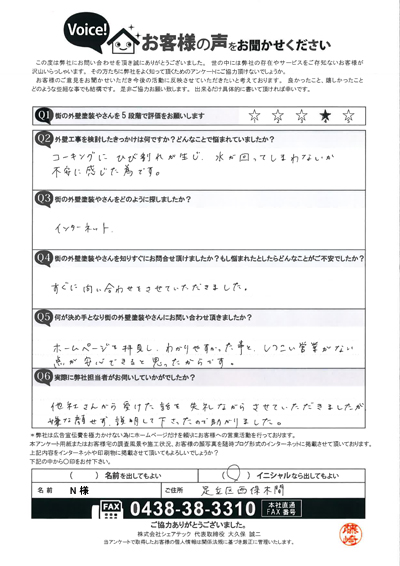 Voice! お客様の声をお聞かせください
この度は弊社にお問い合わせを頂き誠にありがとうございました。 世の中には弊社の存在やサービスをご存知ないお客様が
沢山いらっしゃいます。 その方たちに弊社をよく知って頂くためのアンケートにご協力頂けないでしょうか。
お客様のご意見をお聞かせいただき今後の活動に反映させていただきたいと考えております。 良かったこと、嬉しかったこと
どのような些細な事でも結構です。 是非ご協力お願い致します。 出来るだけ具体的に書いて頂ければ幸いです。
Q1 街の外壁塗装やさんを5段階で評価をお願いします ☆ ☆ ☆ ★ ☆
Q2 外壁工事を検討したきっかけは何ですか？どんなことで悩まれていましたか？
コーキングに ひび割れが生じ、水が回ってしまわないか
不安に感じた為です。
Q3 街の外壁塗装やさんをどのように探しましたか？
インターネット
Q4 街の外壁塗装やさんを知りすぐにお問合せ頂けましたか？もし悩まれたとしたらどんなことがご不安でしたか？
すぐに問い合わせをさせていただきました。
Q5 何が決め手となり街の外壁塗装やさんにお問い合わせ頂けましたか？
ホームページを拝見し、わかりやすかった事と、しつこい営業がない
点が安心できると思ったからです。
Q6 実際に弊社担当者がお伺いしていかがでしたか？
他社さんから受けた話を失礼ながらさせていただきましたが
嫌な顔せず、説明して下さったので助かりました。
＊弊社は広告宣伝費を極力かけない為にホームページだけを頼りにお客様への営業活動を行っております。
本アンケート用紙またはお客様宅の調査風景や施工状況、お客様の顔写真を随時ブログ形式のインターネットに掲載させて頂いております。
上記内容をインターネットや印刷物に掲載させて頂いてもよろしいでしょうか？
下記の中から〇印をお付下さい。
（ ）名前を出してもよい （〇）イニシャルなら出してもよい
名前 N 様 ご住所 足立区西保木間
FAX 0438-38-3310 本社直通 FAX番号
ご協力ありがとうございました。
株式会社シェアテック 代表取締役 大久保 誠二
当アンケートで取得したお客様の個人情報は関係法規に基づき厳正に管理いたします。